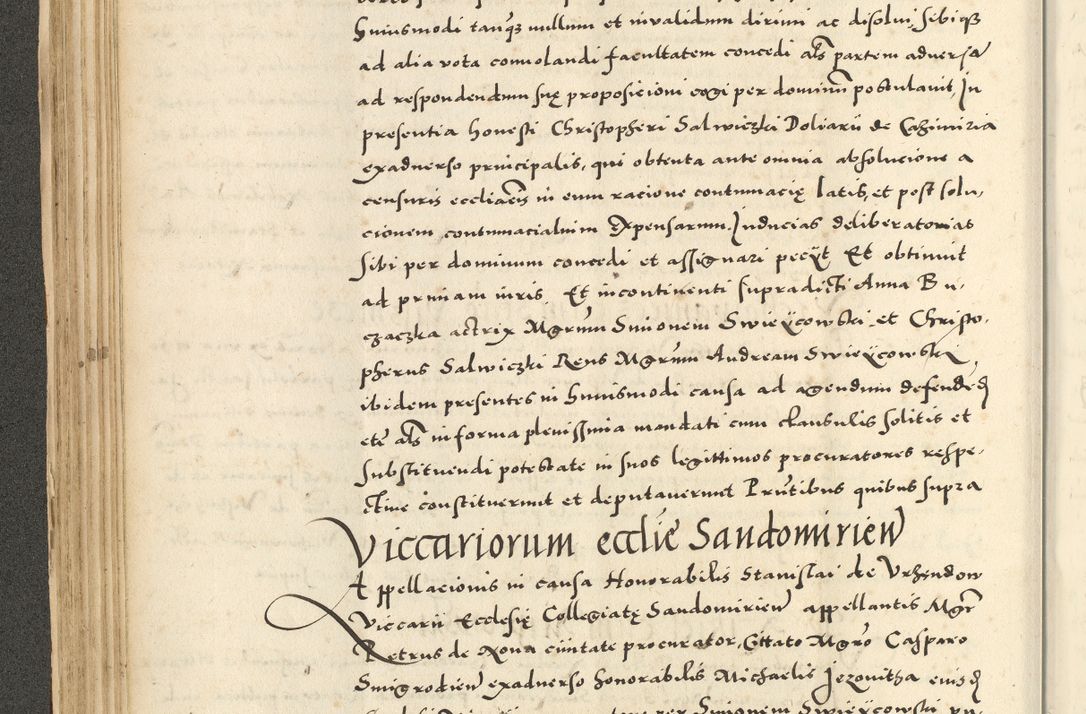 huiusmodi tanq̃ nullum et invalidum dirimi ac disolui, sibiqꝫ
ad alia vota convolandi facultatem concedi als partem adversã
ad respondendum suę proposicioni cogi per dominũ postulavit, In
presentia honesti Christopheri Salwiczki Doliarii de Cazimiria
exadverso principalis, qui obtenta ante omnia absolucione a
censuris eccliacis in eum racione contumacię latis, et post solu-
cionem contumacialium expensarum. Inducias deliberatorias
sibi per dominum concedi et assignari peciit Et obtinuit
ad primam iuris Et incontinenti supradicti Anna Bu-
czaczka actrix Mgrum Simonem Swieÿcowski, et Christo-
pherus Salwiczki Reus Mgrum Andream Swieÿcowski,
ibidem presentes in huiusmodi causa ad agendum defendeñ
etc als in forma plenissima mandati cum clausulis solitis et
substituendi potestate in suos legittimos procuratores respe-
ctive constituerunt et deputaverunt Prñtibus quibus supra
Viccariorum ecclie Sandomirieñ
Appellacionis in causa Honorabilis Stanislai de Vrzendow
Viccarii Ecclesię Collegiatę Sandomirieñ appellantis Mgr
Petrus de Nova civitate procurator, Cittato Mgro Casparo
Smigrodieñ exadverso honorabilis Michaelis Jezovitha eiusd
per Simonem Swieÿcowski